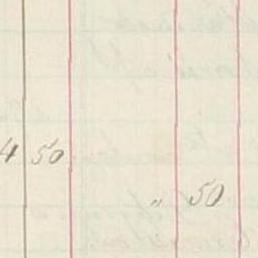 4 50
" 50